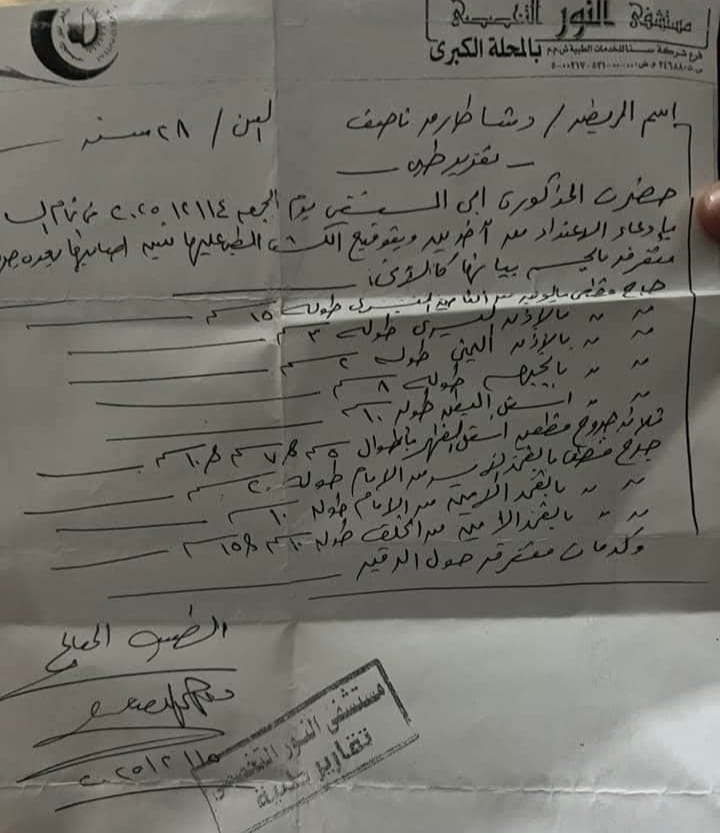 مستشفى النور التخصصي
فرع شركة سنا للخدمات الطبية ش.م.م
بالمحلة الكبرى
إسم المريض / رشا طارق ناصف
السن / ٢٨ سنة
تقرير طبي
حضرت المذكورة إلى المستشفى يوم الجمعة ١٤ / ٢ / ٢٠٢٥ في تمام
بإدعاء الاعتداء من آخرين وبتوقيع الكشف الطبي عليها تبين إصابتها بعدة
متفرقة بالجسم بيانها كالآتى :
جرح قطعي بالوجه من الناحية اليسرى طوله ١٥ سم
〃 〃 بالأذن اليسرى طوله ٣ سم
〃 〃 بالأذن اليمنى طوله ٢ سم
〃 〃 بالجبهة طوله ٨ سم
〃 〃 أسفل البطن طوله ١٠ سم
ثلاثة جروح قطعية أسفل الظهر بأطوال ٥ سم & ٧ سم & ١٠ سم
جرح قطعي بالفخذ الأيسر من الأمام طوله ٢٠ سم
〃 〃 بالفخذ الأيمن من الأمام طوله ١٠ سم
〃 〃 بالفخذ الأيمن من الخلف طوله ١٠ سم & ١٥ سم
وكدمات متفرقة حول الرقبة
الطبيب المعالج
مستشفى النور التخصصي
تقارير طبية